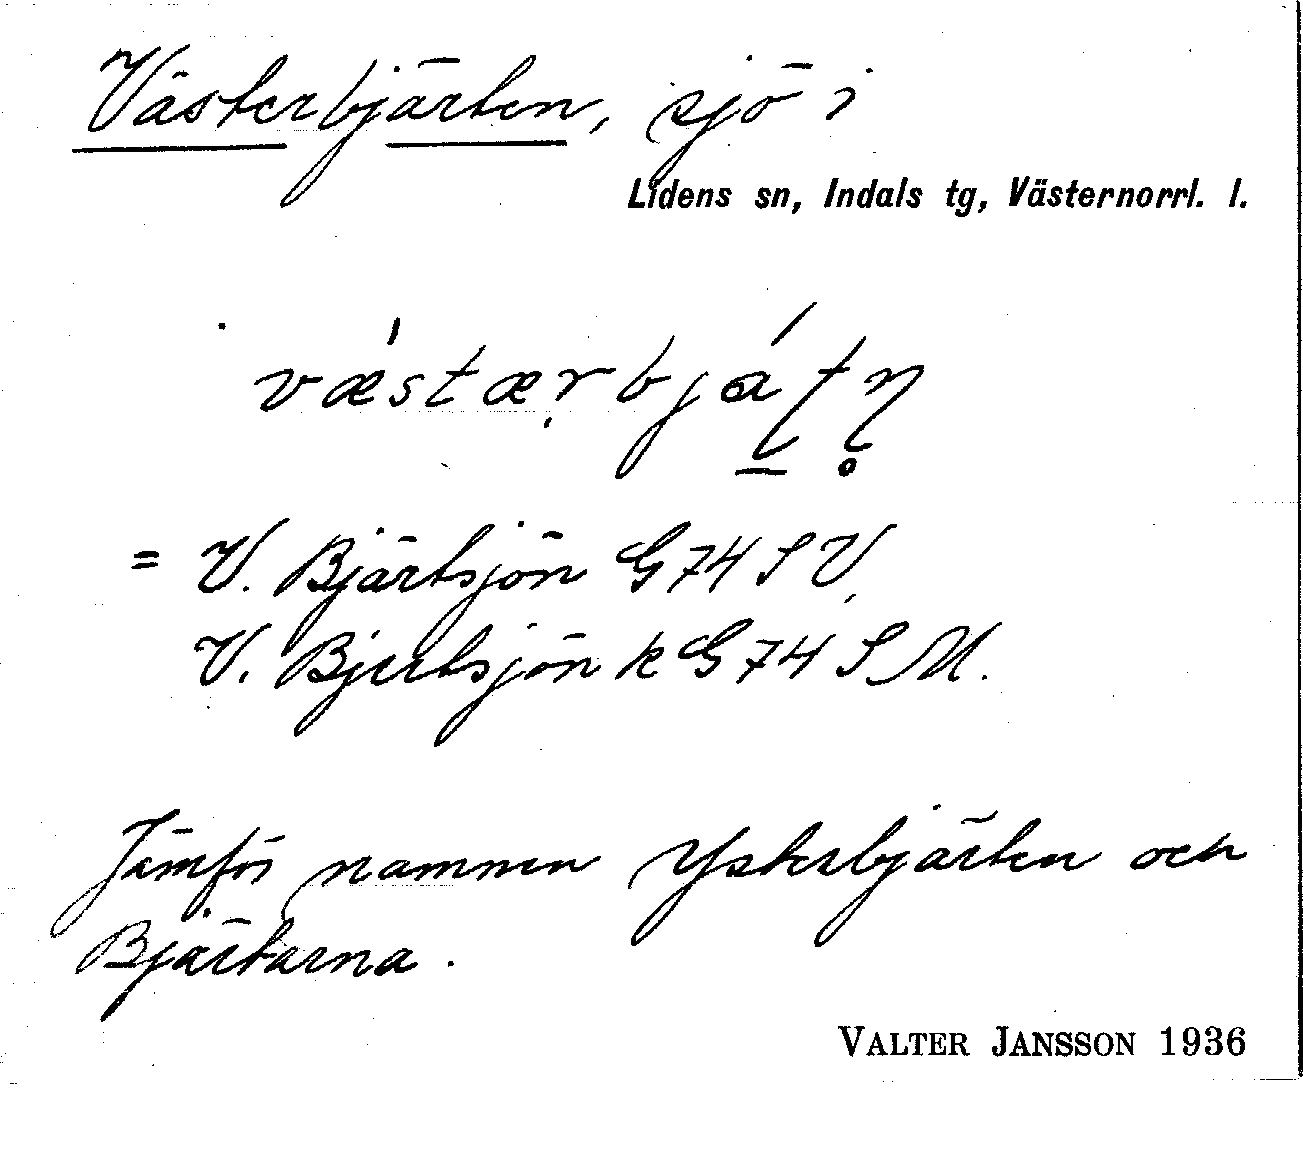 Västerbjärten, sjö i
Lidens sn, Indals tg, Västernorrl. l.
væ´stæ̣rbjáʈɳ̥
= V. Bjärtsjön G74SV,
V. Bjertsjön k G74SM.
Jämför namnen Ysterbjärten och
Bjärtarna.
VALTER JANSSON 1936